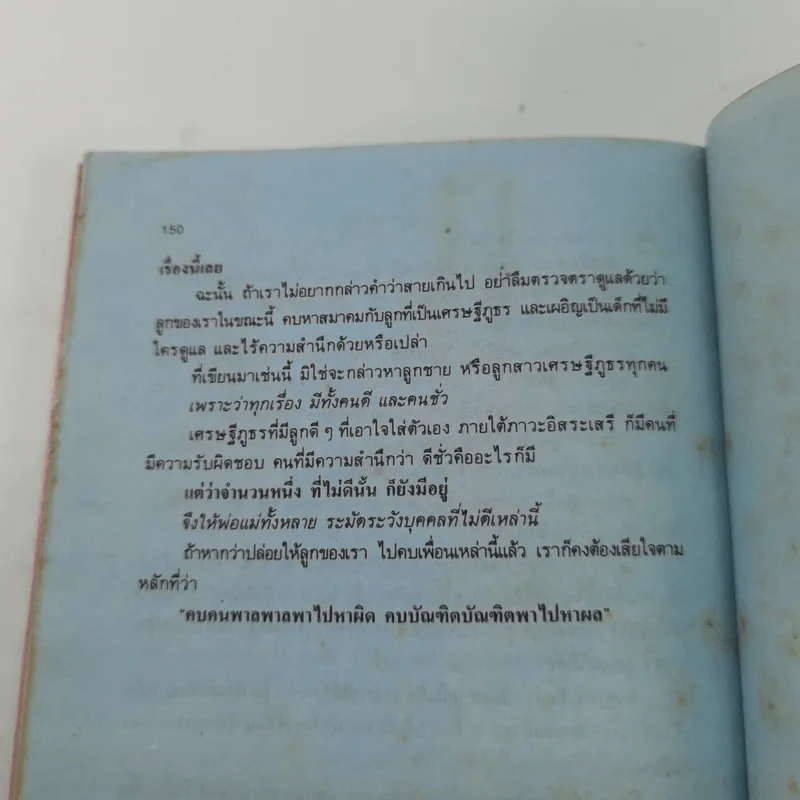 150
เรื่องนี้เลย
ฉะนั้น ถ้าเราไม่อยากกล่าวคำว่าสายเกินไป อย่าลืมตรวจตราดูแลด้วยว่า
ลูกของเราในขณะนี้ คบหาสมาคมกับลูกที่เป็นเศรษฐีภูธร และเผอิญเป็นเด็กที่ไม่มี
ใครดูแล และไร้ความสำนึกด้วยหรือเปล่า
ที่เขียนมาเช่นนี้ มิใช่จะกล่าวหาลูกชาย หรือลูกสาวเศรษฐีภูธรทุกคน
เพราะว่าทุกเรื่อง มีทั้งคนดี และคนชั่ว
เศรษฐีภูธรที่มีลูกดี ๆ ที่เอาใจใส่ตัวเอง ภายใต้ภาวะอิสระเสรี ก็มีคนที่
มีความรับผิดชอบ คนที่มีความสำนึกว่า ดีชั่วคืออะไรก็มี
แต่ว่าจำนวนหนึ่ง ที่ไม่ดีนั้น ก็ยังมีอยู่
จึงให้พ่อแม่ทั้งหลาย ระมัดระวังบุคคลที่ไม่ดีเหล่านี้
ถ้าหากว่าปล่อยให้ลูกของเรา ไปคบเพื่อนเหล่านี้แล้ว เราก็คงต้องเสียใจตาม
หลักที่ว่า
"คบคนพาลพาลพาไปหาผิด คบบัณฑิตบัณฑิตพาไปหาผล"